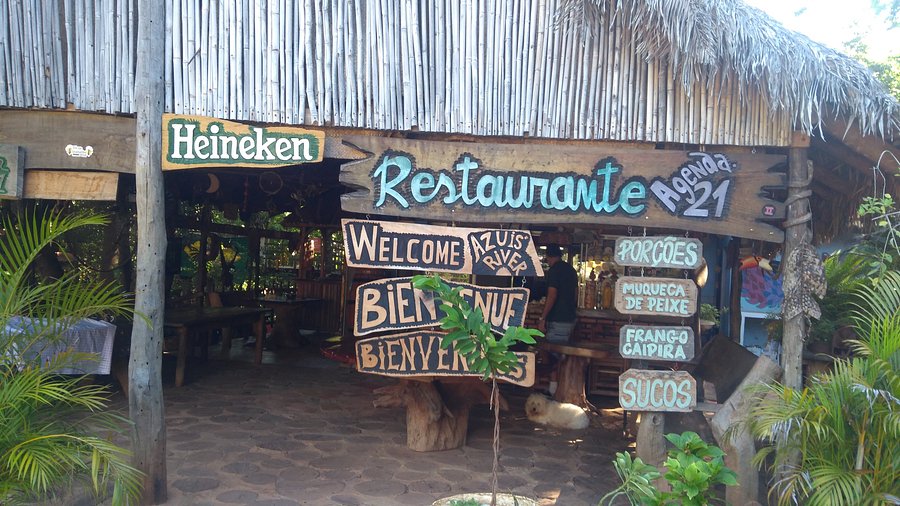 Heineken
Restaurante
Agenda
21
WELCOME
AZUIS
RIVER
BIENVENUE
BIENVENIDOS
PORÇÕES
MUQUECA
DE PEIXE
FRANGO
CAIPIRA
SUCOS